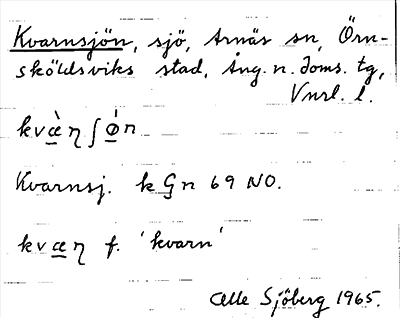 Kvarnsjön, sjö, Arnäs sn, Örn-
sköldsviks stad, Ång. n. doms. tg,
Vnrl. l.
kvæ̀ɳʃø̀n
Kvarnsj. k Gn 69 NO.
kvæɳ f. 'kvarn'
Olle Sjöberg 1965.